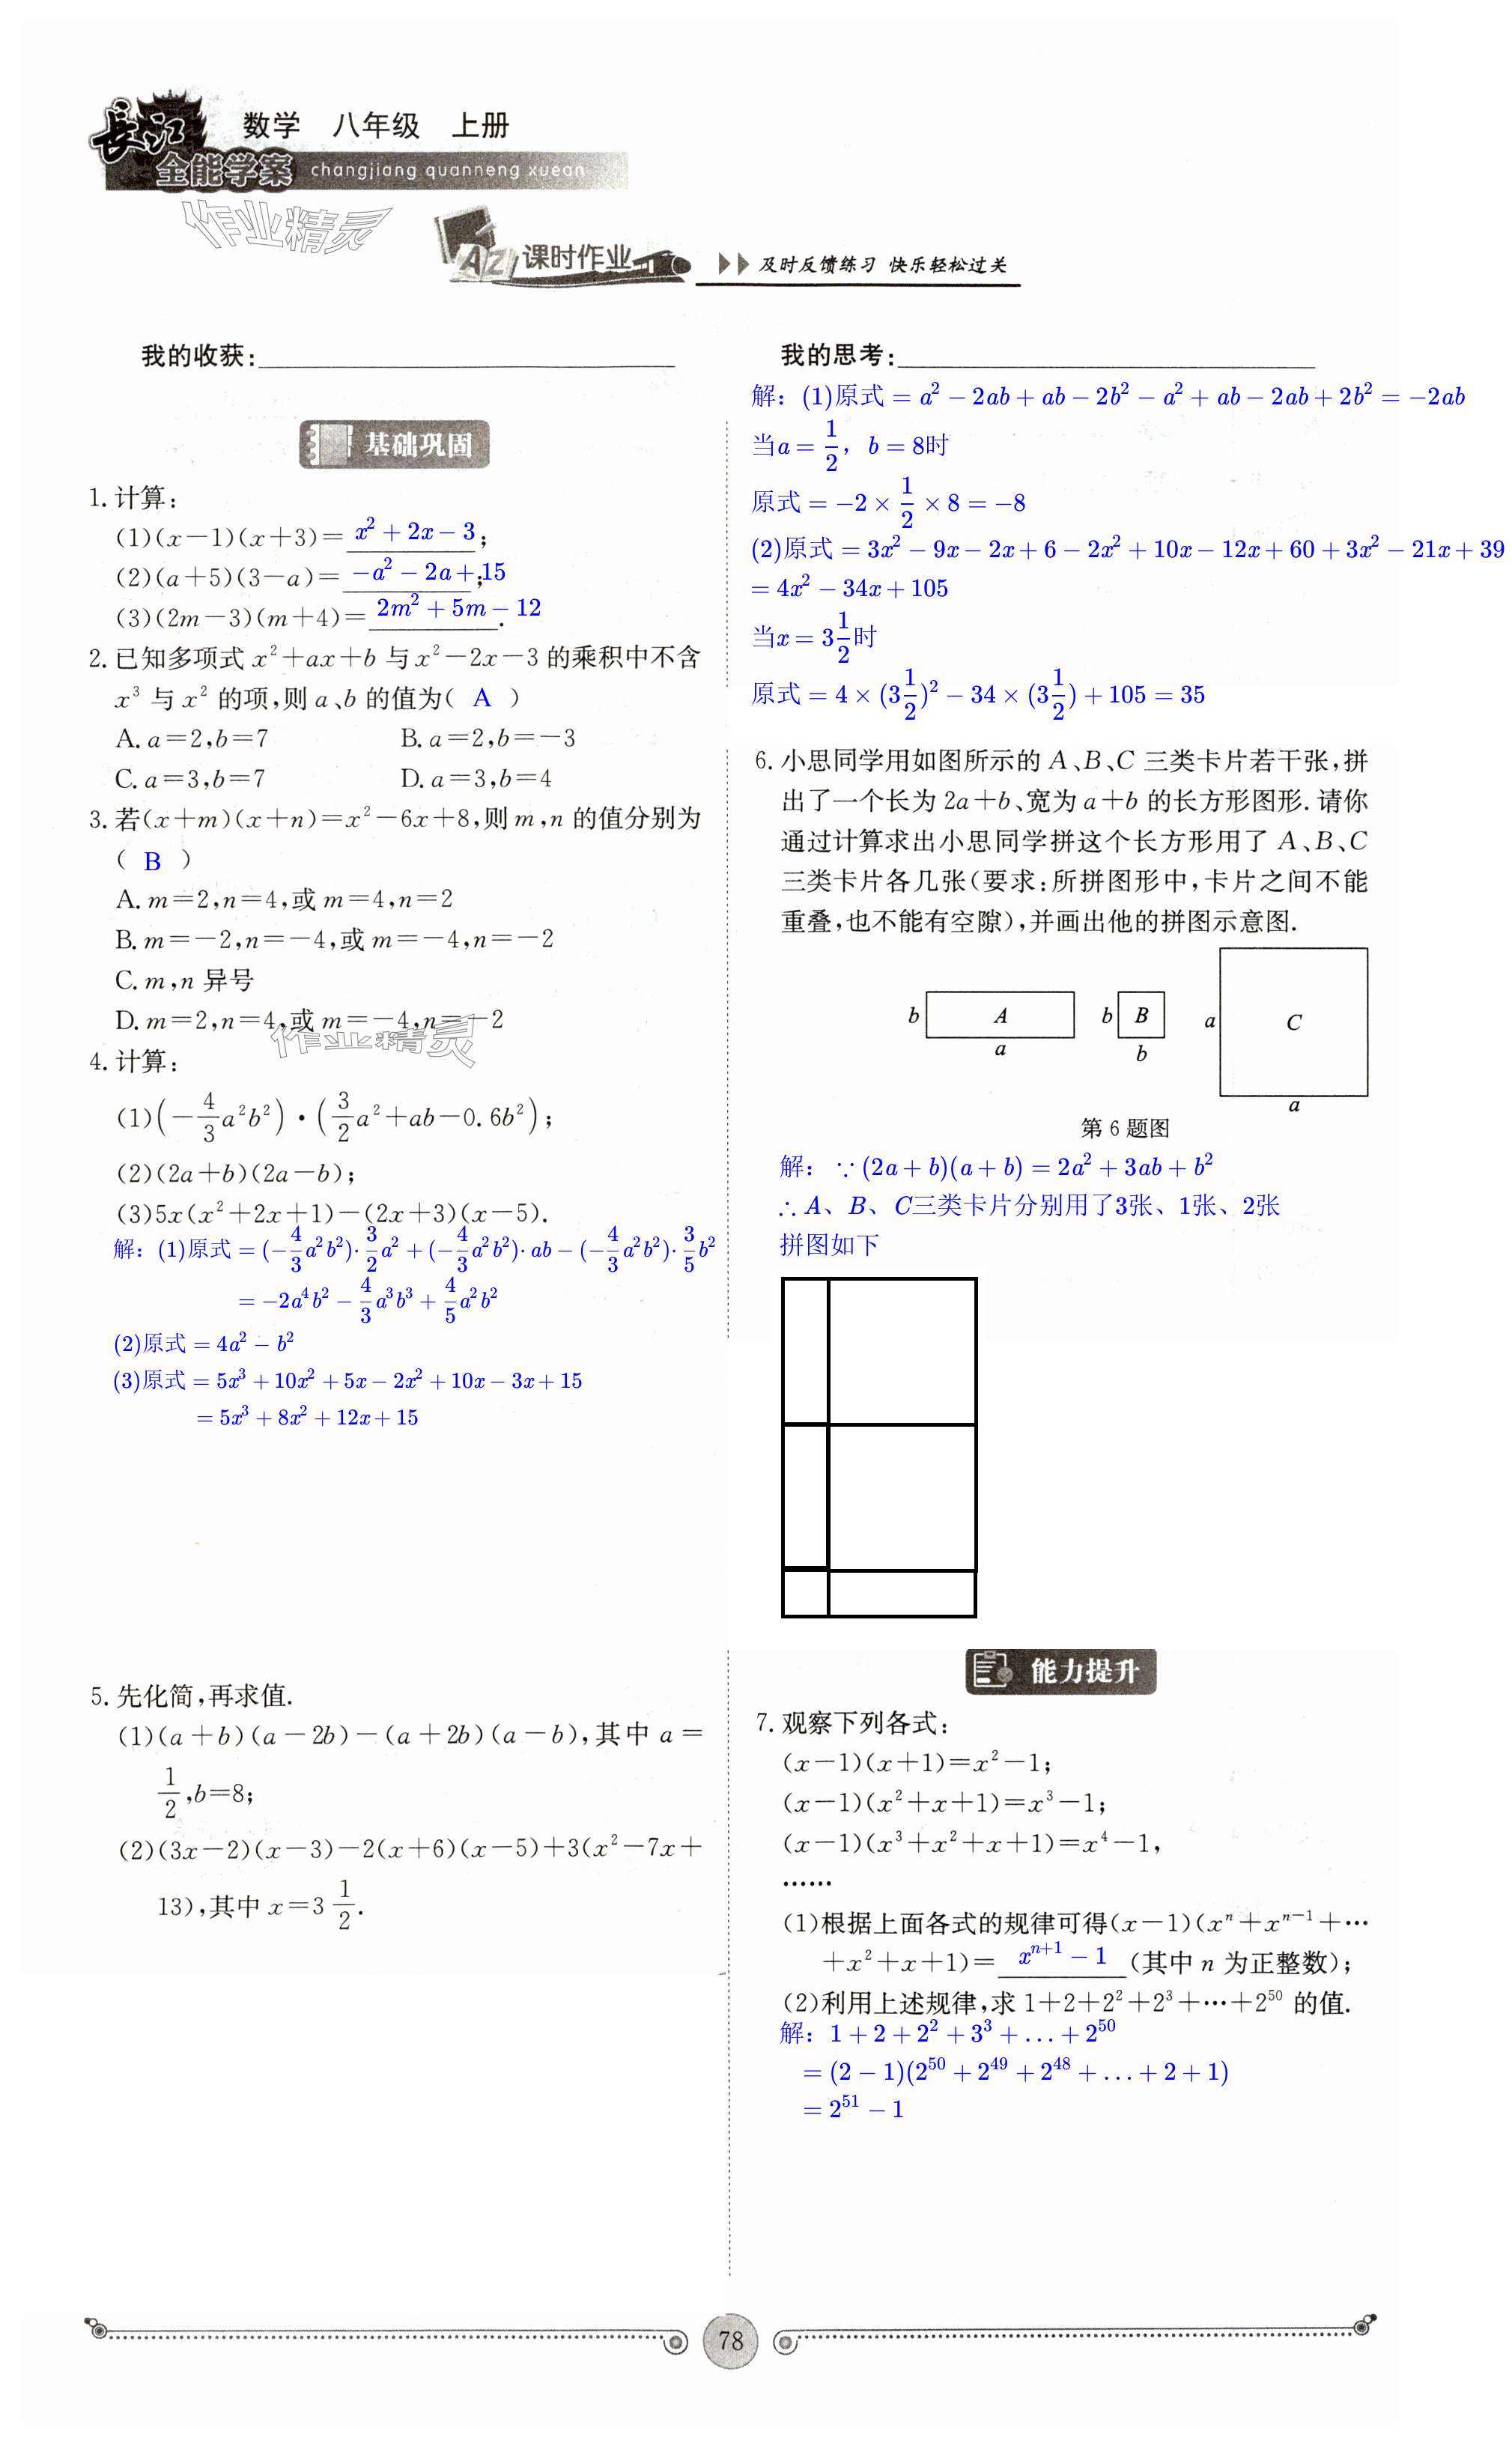 长江
数学 八年级 上册
全能学案 changjiang quanneng xuean
作业精灵
AZ 课时作业 及时反馈练习 快乐轻松过关
我的收获:
基础巩固
1. 计算:
(1)(x-1)(x+3)= x²+2x-3 ;
(2)(a+5)(3-a)= -a²-2a+15 ;
(3)(2m-3)(m+4)= 2m²+5m-12 .
2. 已知多项式 x²+ax+b 与 x²-2x-3 的乘积中不含
x³ 与 x² 的项,则 a、b 的值为( A )
A. a=2,b=7 B. a=2,b=-3
C. a=3,b=7 D. a=3,b=4
3. 若(x+m)(x+n)=x²-6x+8,则 m,n 的值分别为
( B )
A. m=2,n=4,或 m=4,n=2
B. m=-2,n=-4,或 m=-4,n=-2
C. m,n 异号
D. m=2,n=4,或 m=-4,n=-2
作业精灵
4. 计算:
(1)(-4/3 a²b²)·(3/2 a²+ab-0.6b²);
(2)(2a+b)(2a-b);
(3)5x(x²+2x+1)-(2x+3)(x-5).
解: (1)原式=(-4/3 a²b²)·3/2 a²+(-4/3 a²b²)·ab-(-4/3 a²b²)·3/5 b²
=-2a⁴b²-4/3 a³b³+4/5 a²b²
(2)原式=4a²-b²
(3)原式=5x³+10x²+5x-2x²+10x-3x+15
=5x³+8x²+12x+15
5. 先化简,再求值.
(1)(a+b)(a-2b)-(a+2b)(a-b),其中 a=
1/2,b=8;
(2)(3x-2)(x-3)-2(x+6)(x-5)+3(x²-7x+
13),其中 x=3 1/2.
我的思考:
解: (1)原式=a²-2ab+ab-2b²-a²+ab-2ab+2b²=-2ab
当a=1/2, b=8时
原式=-2×1/2×8=-8
(2)原式=3x²-9x-2x+6-2x²+10x-12x+60+3x²-21x+39
=4x²-34x+105
当x=3 1/2时
原式=4×(3 1/2)²-34×(3 1/2)+105=35
6. 小思同学用如图所示的 A、B、C 三类卡片若干张,拼
出了一个长为 2a+b、宽为 a+b 的长方形图形. 请你
通过计算求出小思同学拼这个长方形用了 A、B、C
三类卡片各几张(要求:所拼图形中,卡片之间不能
重叠,也不能有空隙),并画出他的拼图示意图.
b A b B a C
a b a
第 6 题图
解: ∵(2a+b)(a+b)=2a²+3ab+b²
∴A、B、C三类卡片分别用了3张、1张、2张
拼图如下
能力提升
7. 观察下列各式:
(x-1)(x+1)=x²-1;
(x-1)(x²+x+1)=x³-1;
(x-1)(x³+x²+x+1)=x⁴-1,
……
(1)根据上面各式的规律可得(x-1)(xⁿ+xⁿ⁻¹+…
+x²+x+1)= xⁿ⁺¹-1 (其中 n 为正整数);
(2)利用上述规律,求 1+2+2²+2³+…+2⁵⁰ 的值.
解: 1+2+2²+3³+...+2⁵⁰
=(2-1)(2⁵⁰+2⁴⁹+2⁴⁸+...+2+1)
=2⁵¹-1
78